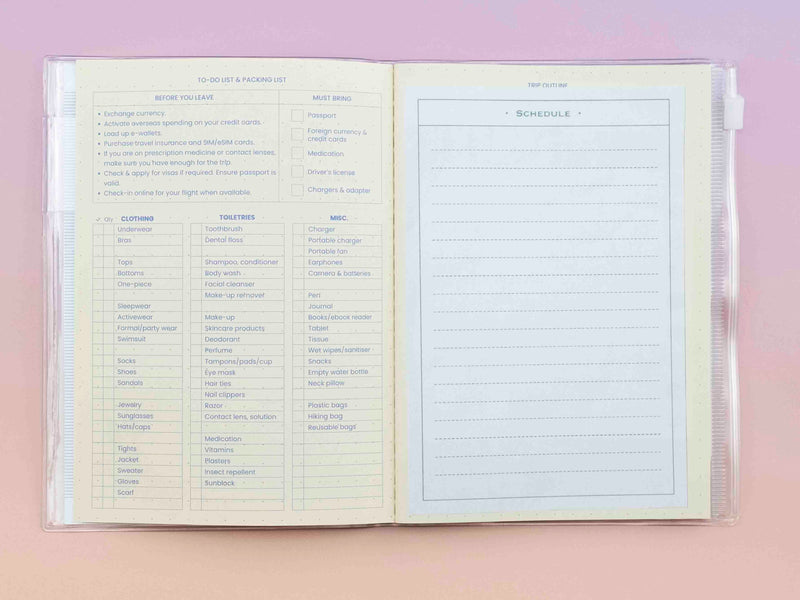 TO-DO LIST & PACKING LIST
BEFORE YOU LEAVE
Exchange currency.
Activate overseas spending on your credit cards.
Load up e-wallets.
Purchase travel insurance and SIM/eSIM cards.
If you are on prescription medicine or contact lenses,
make sure you have enough for the trip.
Check & apply for visas if required. Ensure passport is
valid.
Check-in online for your flight when available.
MUST BRING
Passport
Foreign currency &
credit cards
Medication
Driver's license
Chargers & adapter
✓ Qty CLOTHING
Underwear
Bras
Tops
Bottoms
One-piece
Sleepwear
Activewear
Formal/party wear
Swimsuit
Socks
Shoes
Sandals
Jewelry
Sunglasses
Hats/caps
Tights
Jacket
Sweater
Gloves
Scarf
TOILETRIES
Toothbrush
Dental floss
Shampoo, conditioner
Body wash
Facial cleanser
Make-up remover
Make-up
Skincare products
Deodorant
Perfume
Tampons/pads/cup
Eye mask
Hair ties
Nail clippers
Razor
Contact lens, solution
Medication
Vitamins
Plasters
Insect repellent
Sunblock
MISC.
Charger
Portable charger
Portable fan
Earphones
Camera & batteries
Pen
Journal
Books/ebook reader
Tablet
Tissue
Wet wipes/sanitiser
Snacks
Empty water bottle
Neck pillow
Plastic bags
Hiking bag
Reusable bags
TRIP OUTLINE
SCHEDULE